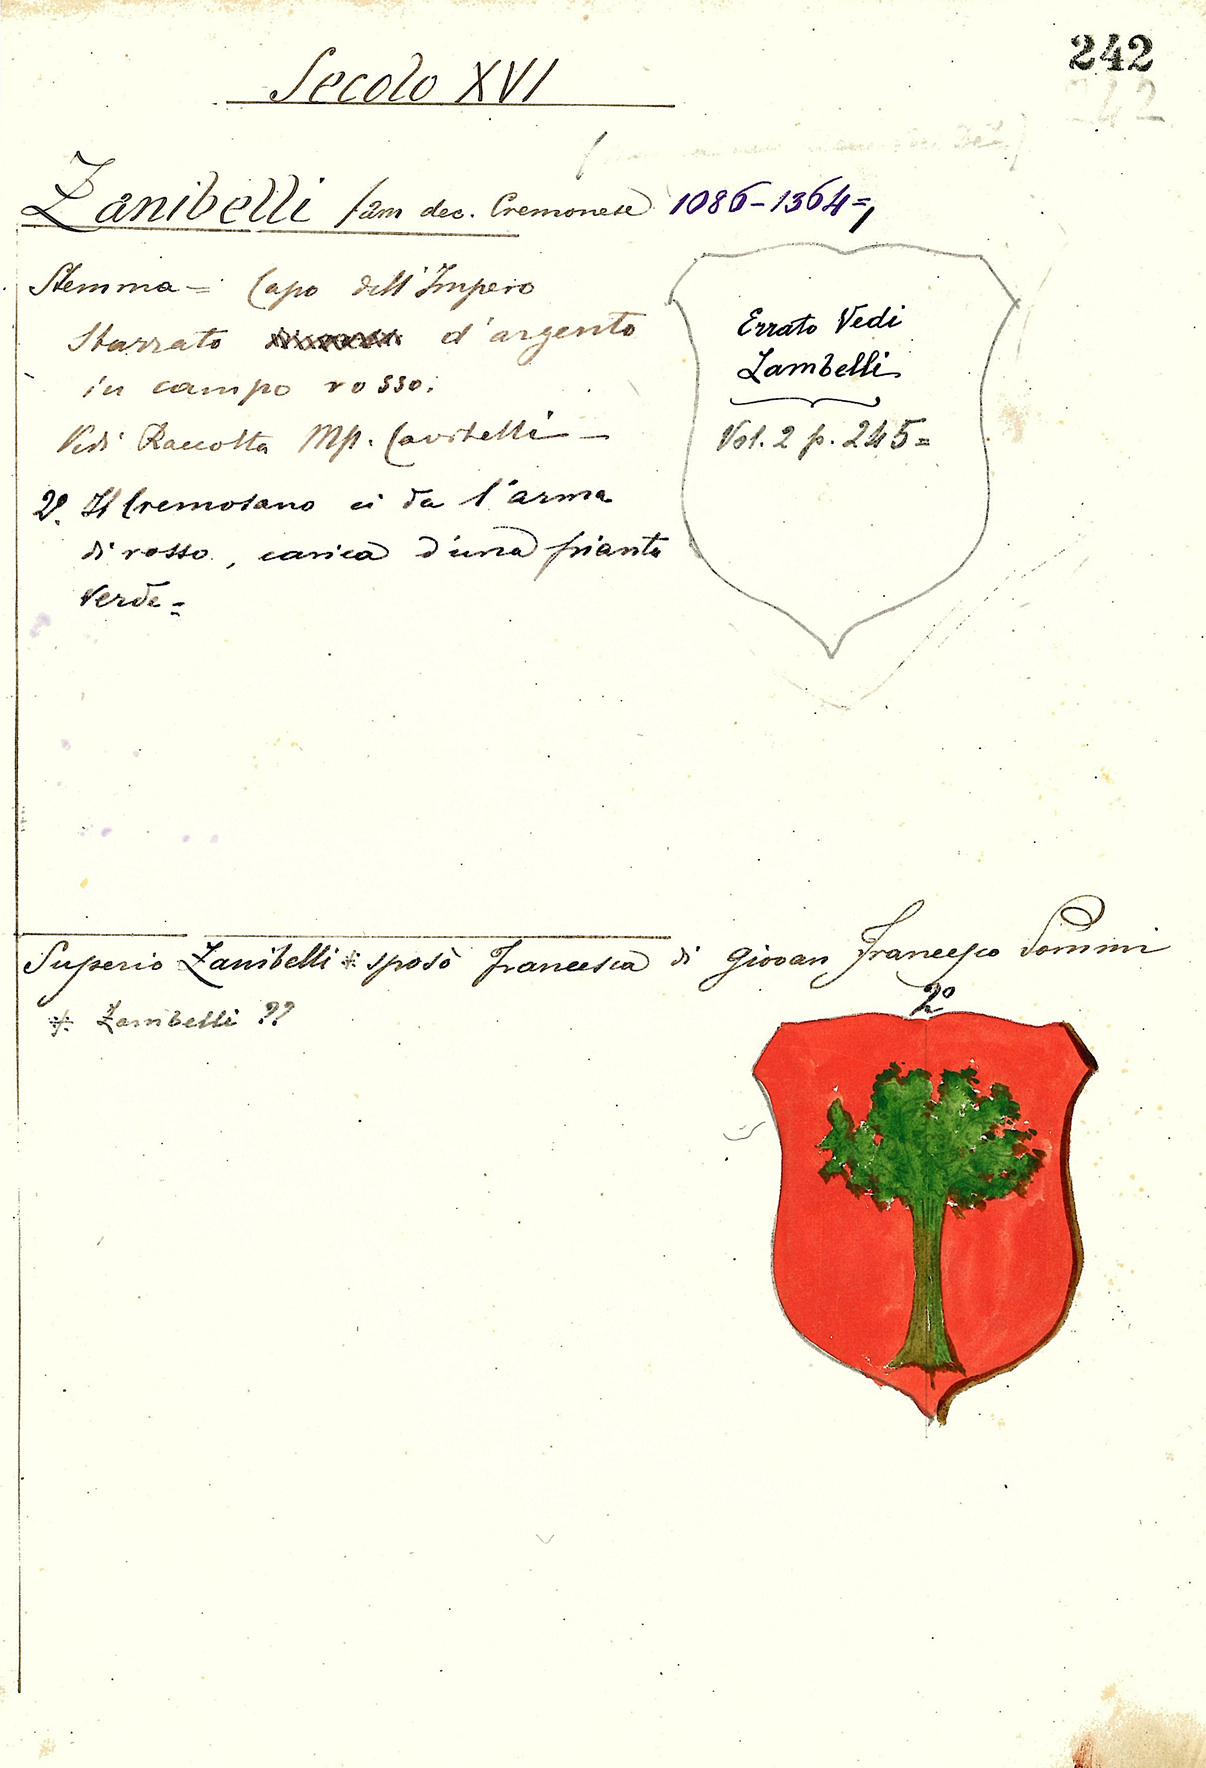 242
242
Secolo XVI
Zanibelli fam dec. Cremonese 1086-1364=,
Stemma = Capo dell'Impero
Sbarrato d'argento
in campo rosso.
Vedi Raccolta Mp. Cavitelli —
2º. Il Cremosano ci da l'arma
di rosso, carica d'una pianta
verde=
Errato Vedi
Zambelli
Vol. 2 p. 245=
Superio Zanibelli * sposò Francesca di Giovan Francesco Sommi
* Zambelli ??
2º